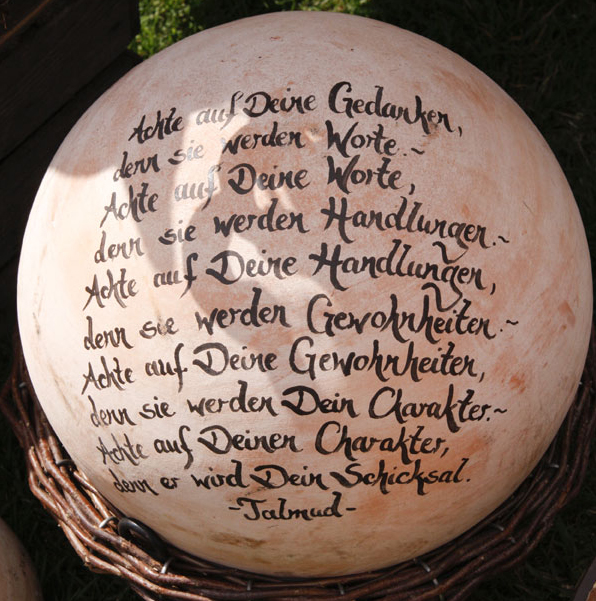 Achte auf Deine Gedanken,
denn sie werden Worte.~
Achte auf Deine Worte,
denn sie werden Handlungen.~
Achte auf Deine Handlungen,
denn sie werden Gewohnheiten.~
Achte auf Deine Gewohnheiten,
denn sie werden Dein Charakter.~
Achte auf Deinen Charakter,
denn er wird Dein Schicksal.
-Talmud-